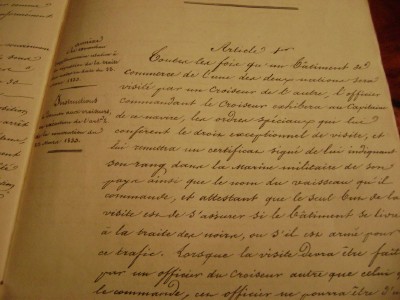 Annexe
à la Convention
supplémentaire relative à
la répression de la traite
des noirs en date du 22
Mars 1833.
Instructions
Article 1er
Toutes les fois qu'un Bâtiment de
commerce de l'une des deux nations sera
visité par un Croiseur de l'autre, l'officier
commandant le Croiseur exhibera au Capitaine
de ce navire, les ordres spéciaux qui lui
confèrent le droit exceptionnel de visite, et
lui remettra un certificat signé de lui indiquant
son rang dans la Marine militaire de son
pays ainsi que le nom du vaisseau qu'il
commande, et attestant que le seul but de la
visite est de s'assurer si le bâtiment se livre
à la traite des noirs, ou s'il est armé pour
ce trafic. Lorsque la visite devra être faite
par un officier du Croiseur autre que celui qui
le commande, cet officier ne pourra être d'u